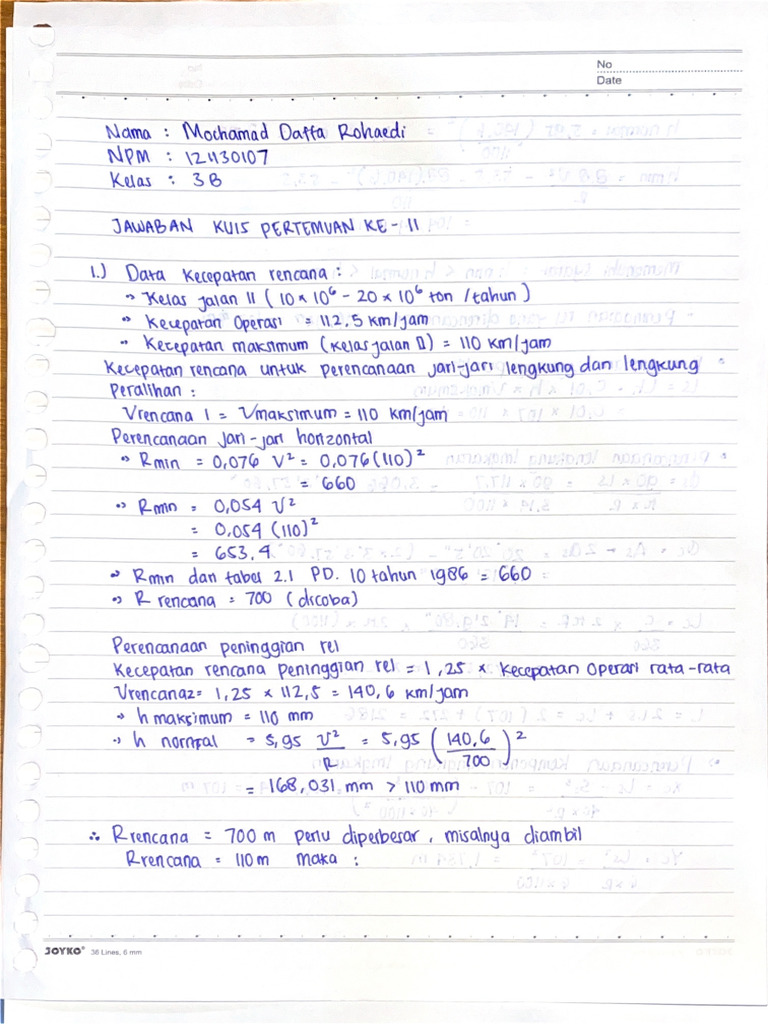 No
Date
Nama : Mochamad Daffa Rohaedi
NPM : 12430107
Kelas : 3B
JAWABAN KUIS PERTEMUAN KE-11
1.) Data Kecepatan rencana :
→ Kelas jalan II ( 10 x 10⁶ - 20 x 10⁶ ton /tahun )
→ Kecepatan Operasi = 112,5 km/jam
→ Kecepatan maksimum (Kelas jalan II) = 110 km/jam
Kecepatan rencana untuk perencanaan jari-jari lengkung dan lengkung
Peralihan :
Vrencana 1 = Vmaksimum = 110 km/jam
Perencanaan jari-jari horizontal
→ Rmin = 0,076 V² = 0,076 (110)²
= 660
→ Rmin = 0,054 V²
= 0,054 (110)²
= 653.4
→ Rmin dan tabel 2.1 PD. 10 tahun 1986 = 660
→ R rencana = 700 (dicoba)
Perencanaan peninggian rel
Kecepatan rencana peninggian rel = 1,25 x Kecepatan Operasi rata-rata
Vrencana2 = 1,25 x 112,5 = 140,6 km/jam
→ h maksimum = 110 mm
→ h normal = 5,95 V²/R = 5,95 (140,6/700)²
= 168,031 mm > 110 mm
∴ Rrencana = 700 m perlu diperbesar, misalnya diambil
Rrencana = 110 m maka :
JOYKO® 36 Lines, 6 mm